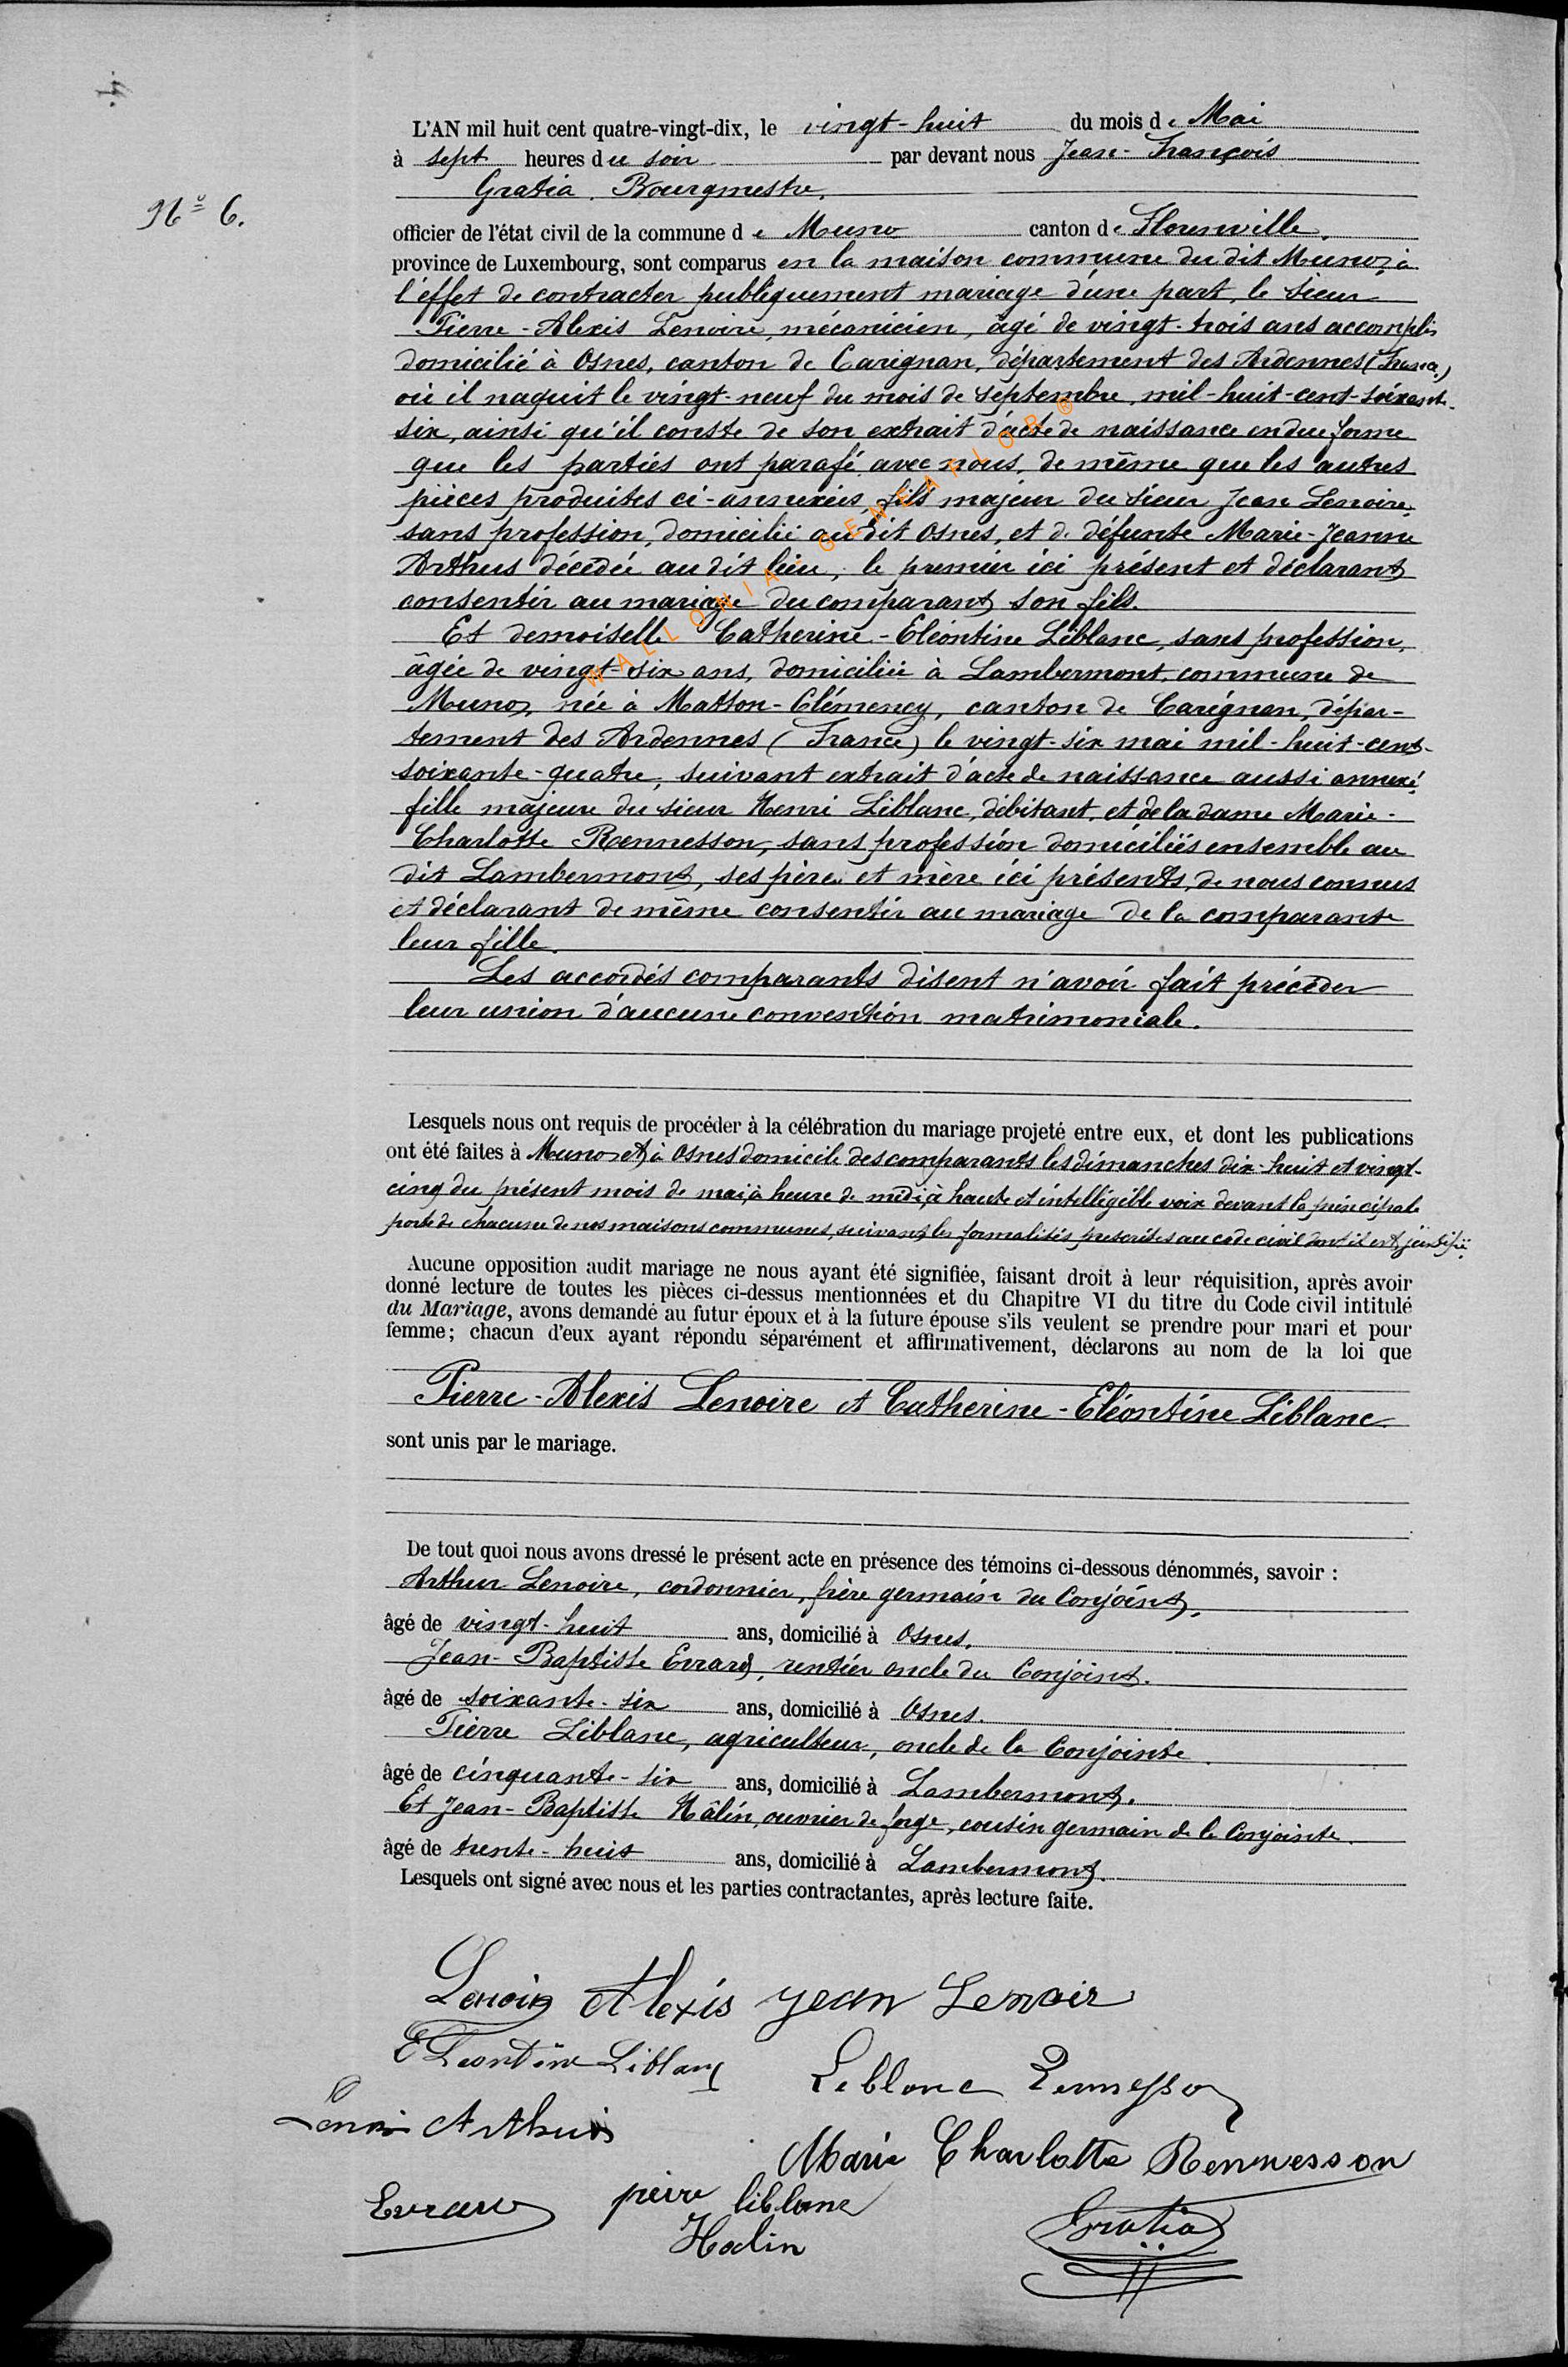 L'AN mil huit cent quatre-vingt-dix, le vingt-huit du mois de Mai
à sept heures du soir par devant nous Jean-François
Gratia, Bourgmestre,
N° 6.
officier de l'état civil de la commune de Muno canton de Florenville,
province de Luxembourg, sont comparus en la maison commune du dit Muno, à
l'effet de contracter publiquement mariage d'une part, le sieur
Pierre-Alexis Lenoire, mécanicien, âgé de vingt-trois ans accomplis
domicilié à Osnes, canton de Carignan, département des Ardennes (France)
où il naquit le vingt-neuf du mois de septembre, mil-huit-cent-soixante-
six, ainsi qu'il conste de son extrait d'acte de naissance en due forme
que les parties ont parafé avec nous, de même que les autres
pièces produites ci-annexées, fils majeur du sieur Jean Lenoire,
sans profession, domicilié au dit Osnes, et de défunte Marie-Jeanne
Arthus décédée au dit lieu, le premier ici présent et déclarant
consentir au mariage du comparant son fils.
Et demoiselle Catherine-Eléontine Liblanc, sans profession,
âgée de vingt-six ans, domiciliée à Lambermont, commune de
Muno, née à Matton-Clémency, canton de Carignan, dépar-
tement des Ardennes (France) le vingt-six mai mil-huit-cent-
soixante-quatre, suivant extrait d'acte de naissance aussi annexé,
fille majeure du sieur Henri Liblanc, débitant, et de la dame Marie-
Charlotte Rennesson, sans profession domiciliés ensemble au
dit Lambermont, ses père et mère ici présents, de nous connus
et déclarant de même consentir au mariage de la comparante
leur fille.
Les accordés comparants disent n'avoir fait précéder
leur union d'aucune convention matrimoniale.
Lesquels nous ont requis de procéder à la célébration du mariage projeté entre eux, et dont les publications
ont été faites à Muno et à Osnes domicile des comparants les dimanches dix-huit et vingt-
cinq du présent mois de mai, à heure de midi, à haute et intelligible voix devant la principale
porte de chacune de nos maisons communes, suivant les formalités prescrites au code civil dont il est justifié.
Aucune opposition audit mariage ne nous ayant été signifiée, faisant droit à leur réquisition, après avoir
donné lecture de toutes les pièces ci-dessus mentionnées et du Chapitre VI du titre du Code civil intitulé
du Mariage, avons demandé au futur époux et à la future épouse s'ils veulent se prendre pour mari et pour
femme; chacun d'eux ayant répondu séparément et affirmativement, déclarons au nom de la loi que
Pierre-Alexis Lenoire et Catherine-Eléontine Liblanc
sont unis par le mariage.
De tout quoi nous avons dressé le présent acte en présence des témoins ci-dessous dénommés, savoir :
Arthur Lenoire, cordonnier, frère germain du Conjoint,
âgé de vingt-huit ans, domicilié à Osnes.
Jean-Baptiste Evrard, rentier oncle du Conjoint.
âgé de soixante-six ans, domicilié à Osnes.
Pierre Liblanc, agriculteur, oncle de la Conjointe
âgé de cinquante-six ans, domicilié à Lambermont.
Et Jean-Baptiste Hâlin, ouvrier de forge, cousin germain de la Conjointe.
âgé de trente-huit ans, domicilié à Lambermont.
Lesquels ont signé avec nous et les parties contractantes, après lecture faite.
Lenoir Alexis Jean Lenoir
Eléontine Liblanc Leblanc Rennesson
Lenoir Arthur
Marie Charlotte Rennesson
Evrard pierre liblanc
Halin Gratia
WALLONIA-GENEAFLOR®